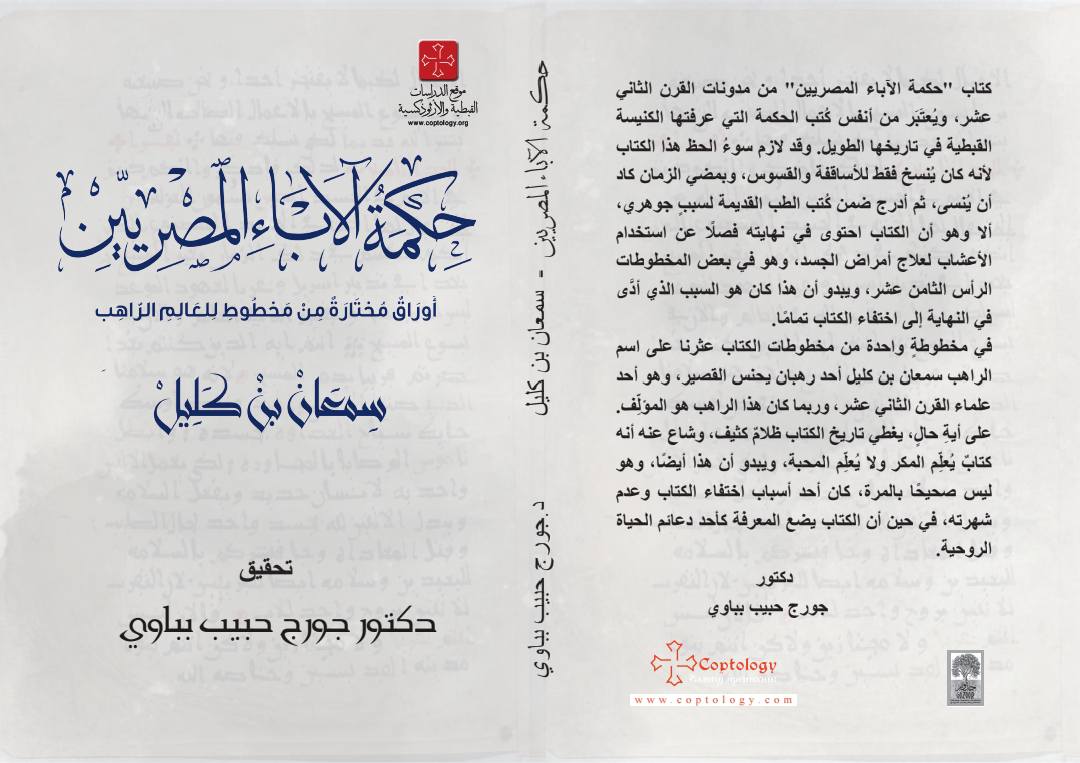 موقع الدراسات
القبطية والأرثوذكسية
www.coptology.org
حِكمَةُ الآبَاءِ المَصْرِيِّينَ
أوراقٌ مُختَارَةٌ مِنْ مَخطُوطٍ لِلعَالِمِ الرَاهِب
سِمعَانْ بنْ كَلِيلْ
تحقيق
دكتور جورج حبيب بباوي
حكمة الآباء المصريين - سمعان بن كليل
د. جورج حبيب بباوي
كتاب "حكمة الآباء المصريين" من مدونات القرن الثاني
عشر، ويُعتَبَر من أنفس كُتب الحكمة التي عرفتها الكنيسة
القبطية في تاريخها الطويل. وقد لازم سوءُ الحظ هذا الكتاب
لأنه كان يُنسخ فقط للأساقفة والقسوس، وبمضي الزمان كاد
أن يُنسى، ثم أُدرج ضمن كُتب الطب القديمة لسببٍ جوهري،
ألا وهو أن الكتاب احتوى في نهايته فصلًا عن استخدام
الأعشاب لعلاج أمراض الجسد، وهو في بعض المخطوطات
الرأس الثامن عشر، ويبدو أن هذا كان هو السبب الذي أدَّى
في النهاية إلى اختفاء الكتاب تمامًا.
في مخطوطةٍ واحدة من مخطوطات الكتاب عثرنا على اسم
الراهب سمعان بن كليل أحد رهبان يحنس القصير، وهو أحد
علماء القرن الثاني عشر، وربما كان هذا الراهب هو المؤلِّف.
على أيةِ حالٍ، يغطي تاريخ الكتاب ظلامٌ كثيف، وشاع عنه أنه
كتابٌ يُعلِّم المكر ولا يُعلِّم المحبة، ويبدو أن هذا أيضًا، وهو
ليس صحيحًا بالمرة، كان أحد أسباب اختفاء الكتاب وعدم
شهرته، في حين أن الكتاب يضع المعرفة كأحد دعائم الحياة
الروحية.
دكتور
جورج حبيب بباوي
Coptology
www.coptology.com